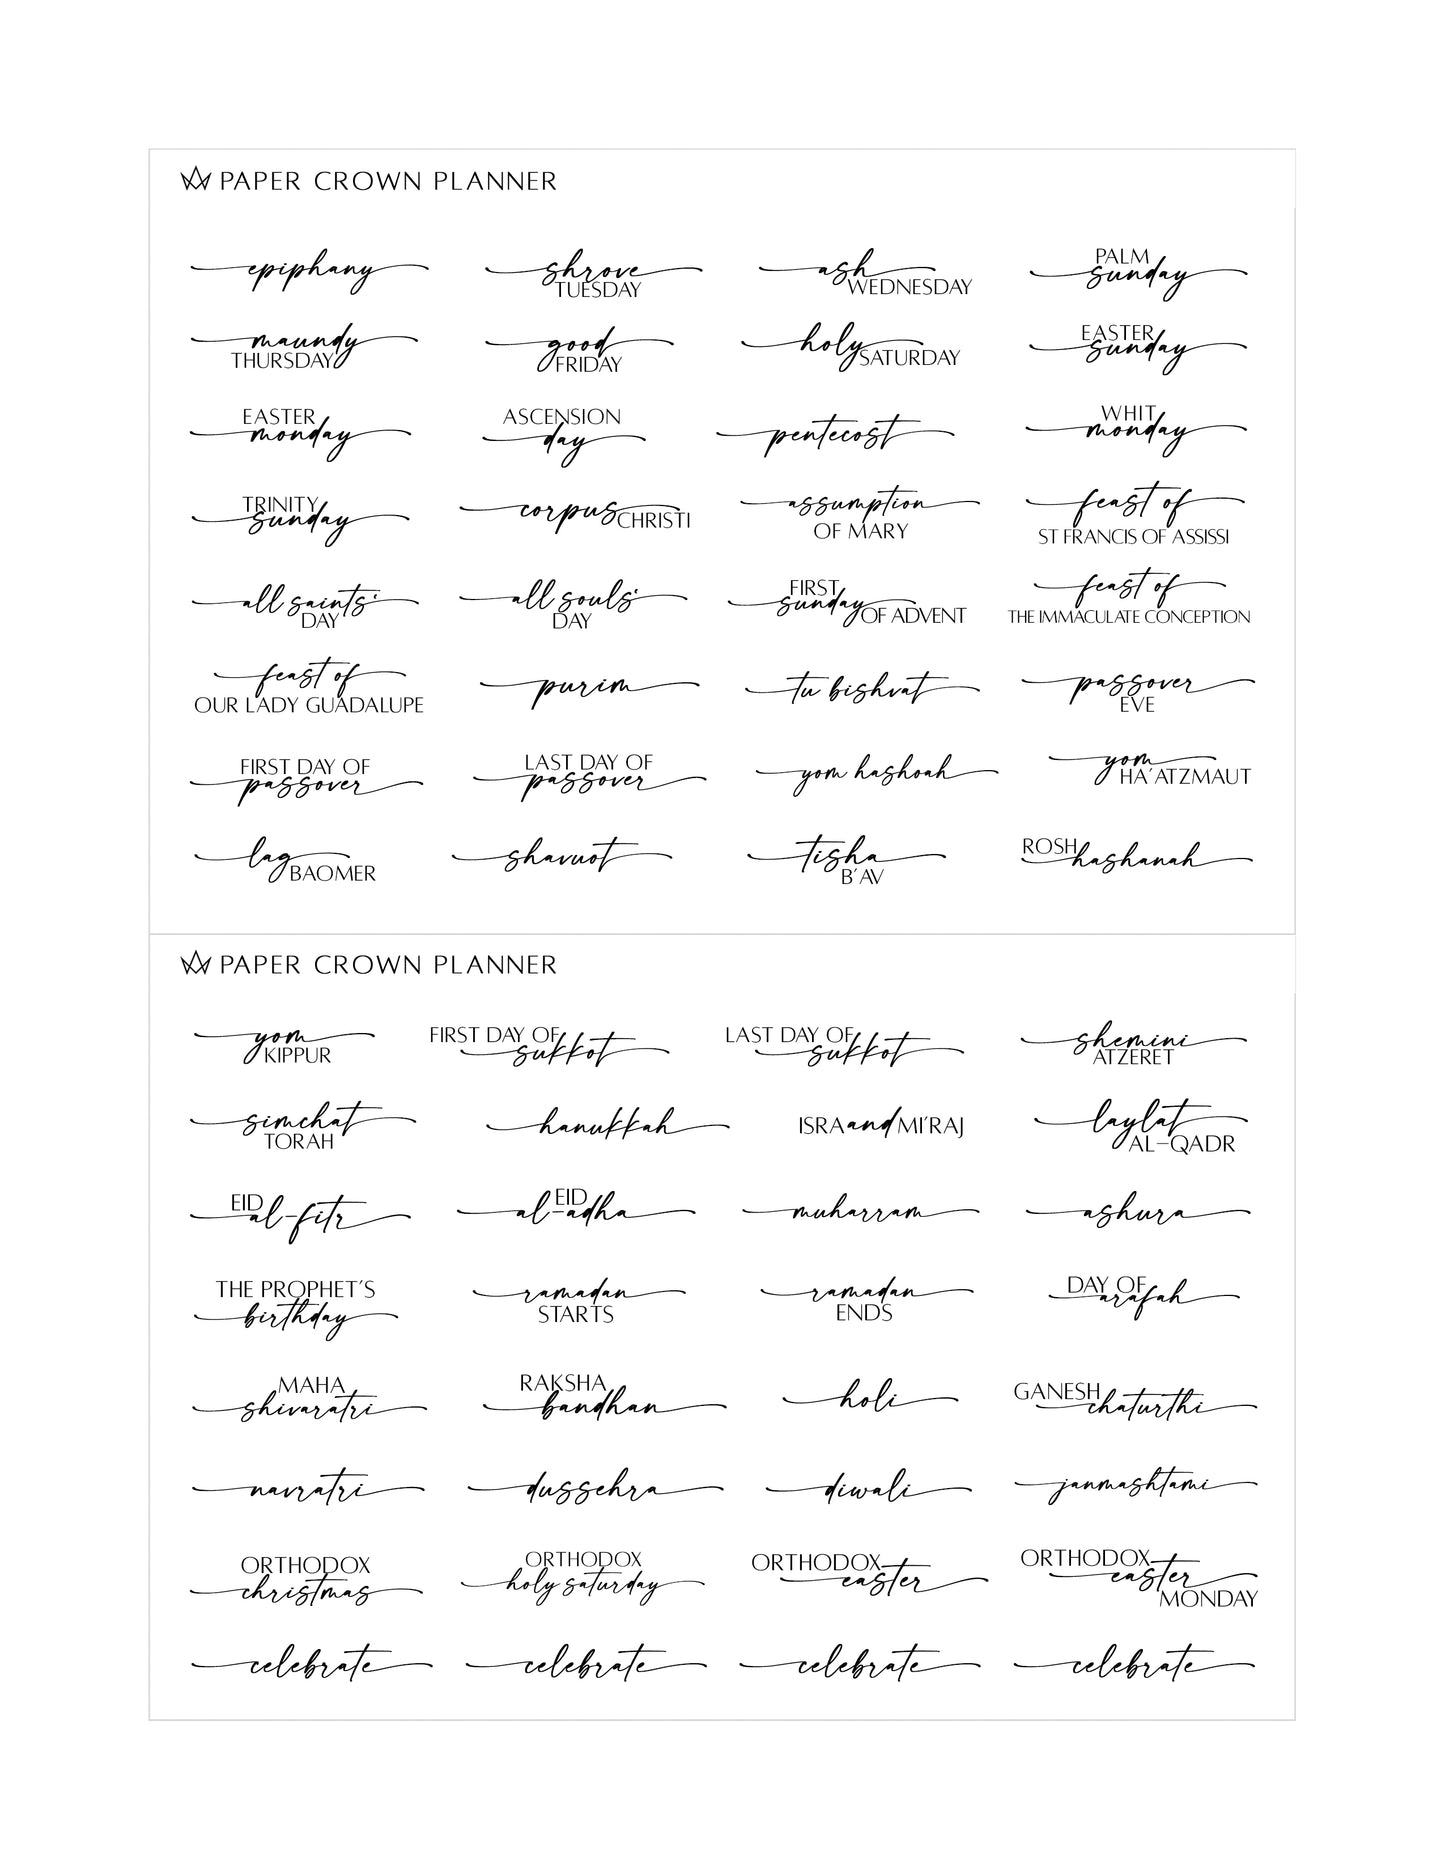 PAPER CROWN PLANNER
epiphany
shrove
TUESDAY
ash
WEDNESDAY
PALM
sunday
maundy
THURSDAY
good
FRIDAY
holy
SATURDAY
EASTER
sunday
EASTER
monday
ASCENSION
day
pentecost
WHIT
monday
TRINITY
sunday
corpus
CHRISTI
assumption
OF MARY
feast of
ST FRANCIS OF ASSISSI
all saints'
DAY
all souls'
DAY
FIRST
sunday
OF ADVENT
feast of
THE IMMACULATE CONCEPTION
feast of
OUR LADY GUADALUPE
purim
tu bishvat
passover
EVE
FIRST DAY OF
passover
LAST DAY OF
passover
yom hashoah
yom
HA'ATZMAUT
lag
BAOMER
shavuot
tisha
B'AV
ROSH
hashanah
PAPER CROWN PLANNER
yom
KIPPUR
FIRST DAY OF
sukkot
LAST DAY OF
sukkot
shemini
ATZERET
simchat
TORAH
hanukkah
ISRA and MI'RAJ
laylat
AL-QADR
EID
al-fitr
EID
al-adha
muharram
ashura
THE PROPHET'S
birthday
ramadan
STARTS
ramadan
ENDS
DAY OF
arafah
MAHA
shivaratri
RAKSHA
bandhan
holi
GANESH
chaturthi
navratri
dussehra
diwali
janmashtami
ORTHODOX
christmas
ORTHODOX
holy saturday
ORTHODOX
easter
ORTHODOX
easter
MONDAY
celebrate
celebrate
celebrate
celebrate